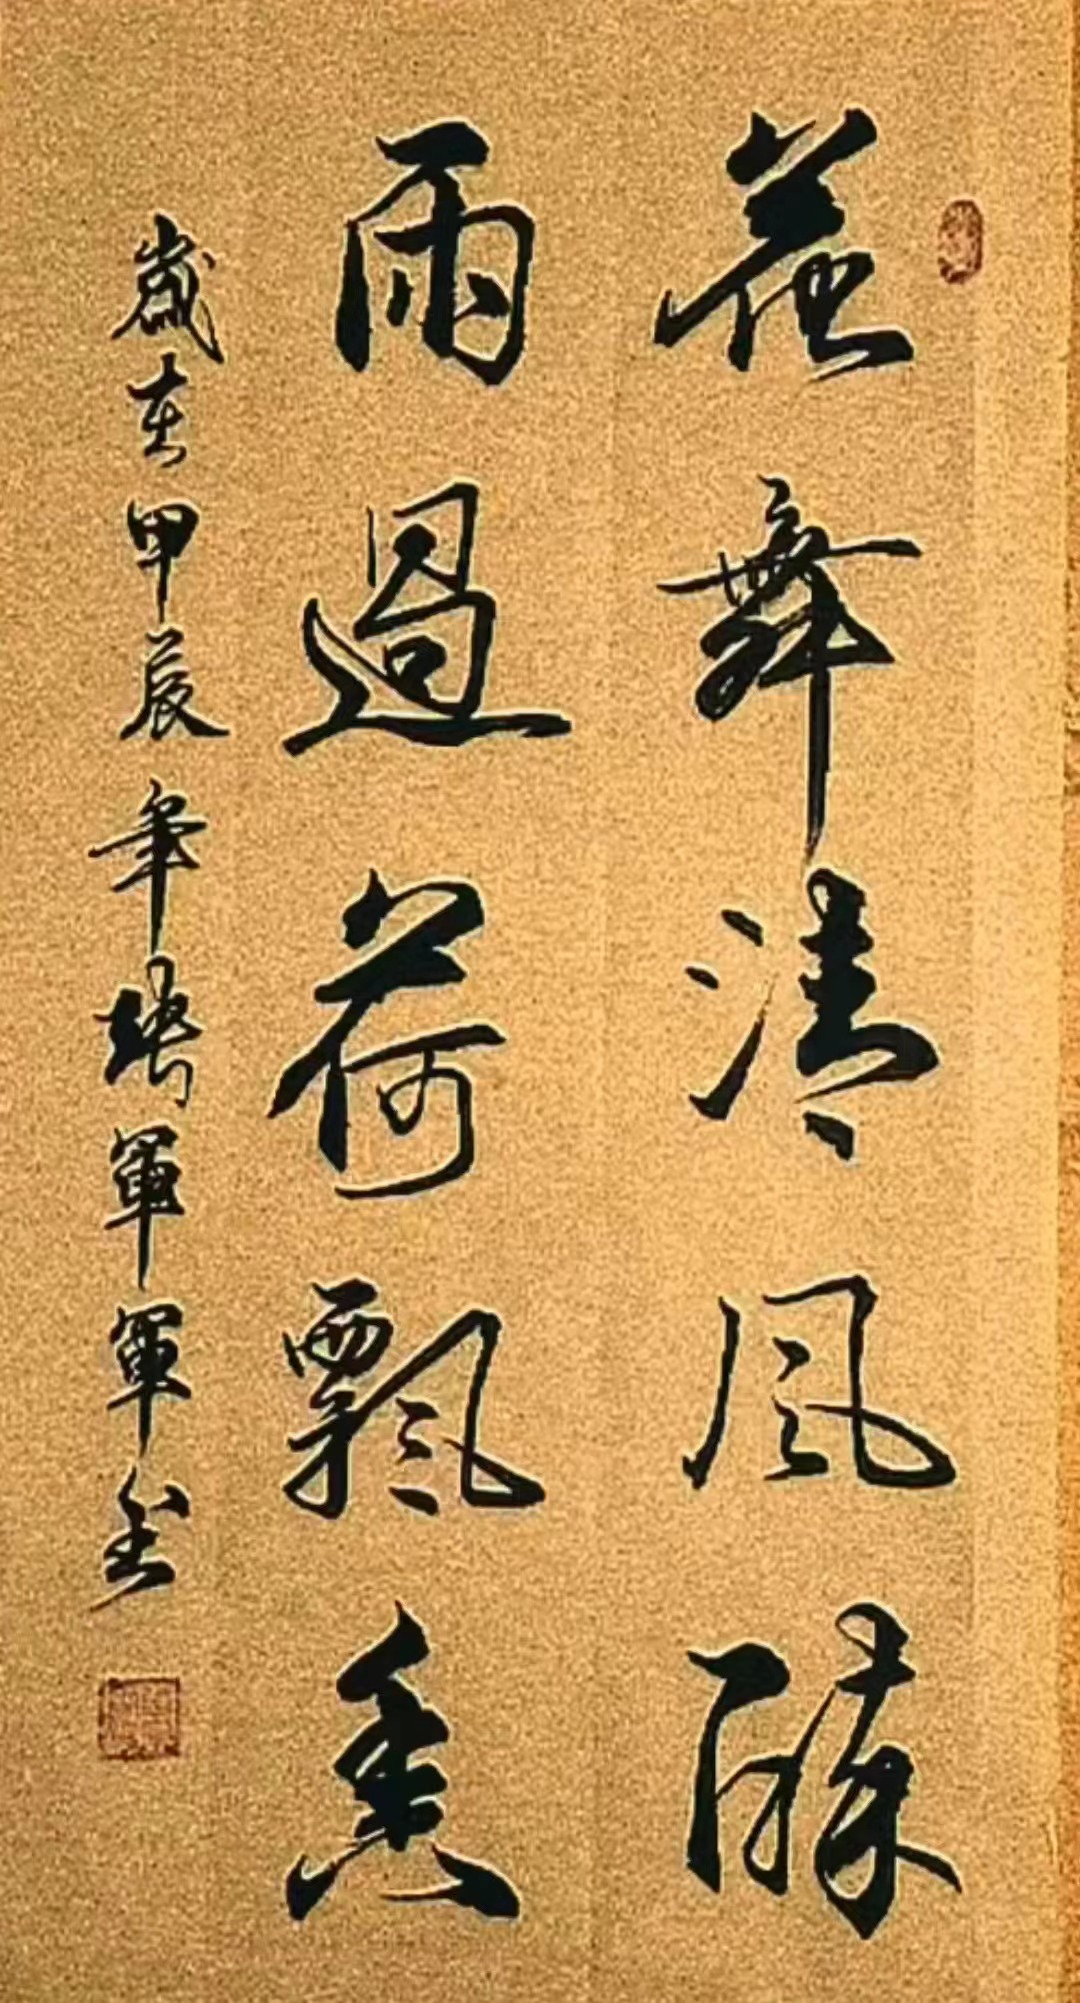 花舞清風醉
雨過荷飄香
歲在甲辰年軍軍書